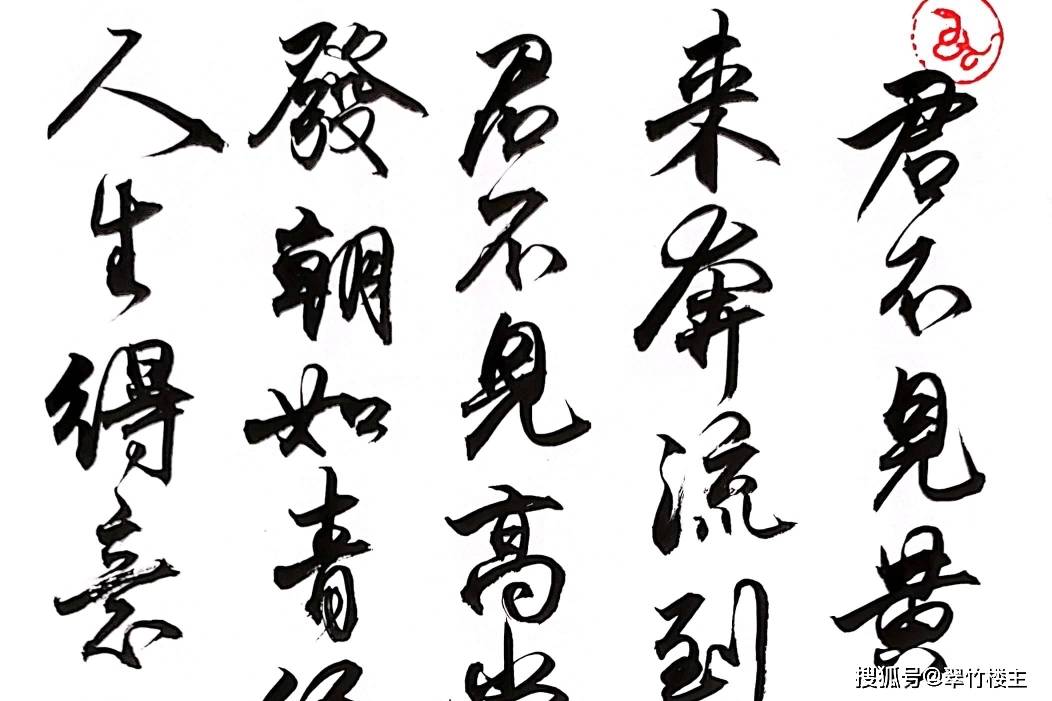 君不见黄
来奔流到
君不见高堂
發朝如青
人生得意
搜狐号@翠竹楼主